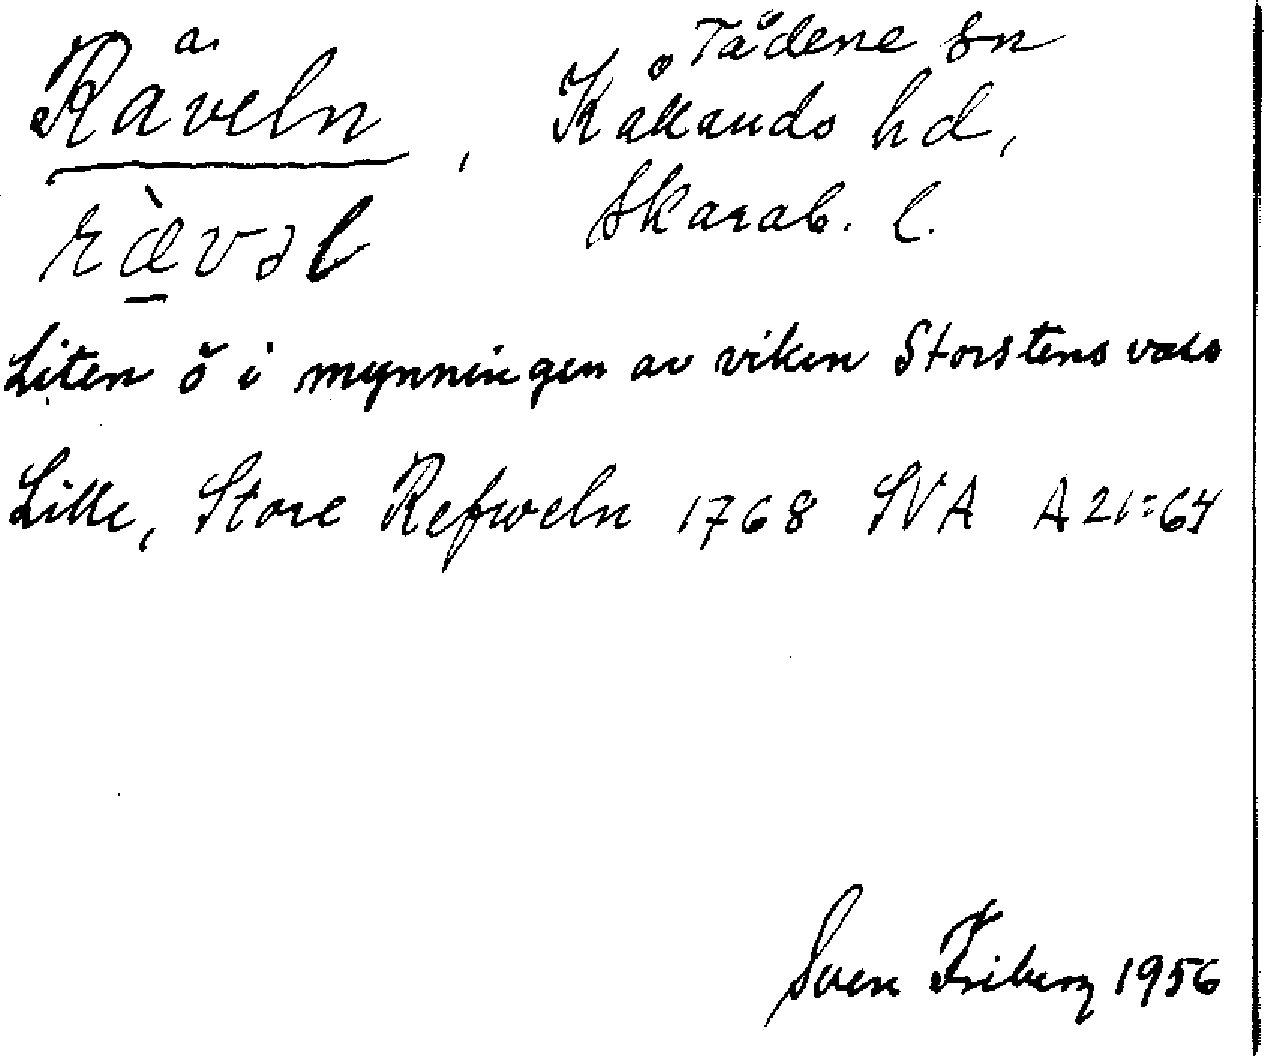 a.
Räveln, Tådene sn
Kållands hd,
Skarab. l.
ræ̀vəl
Liten ö i mynningen av viken Storstens vass
Lille, Store Refweln 1768 SVA A 21:64
Sven Friberg 1956